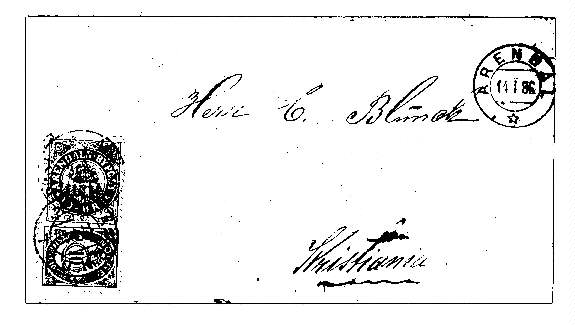 ARENDAL
14 I 86
Herr C. Blunck
Christiania